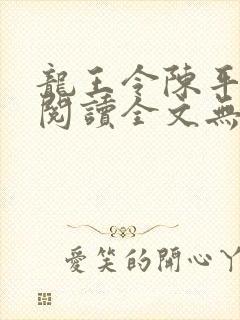 龍王令陳平
閱讀全文無
愛笑的開心丫